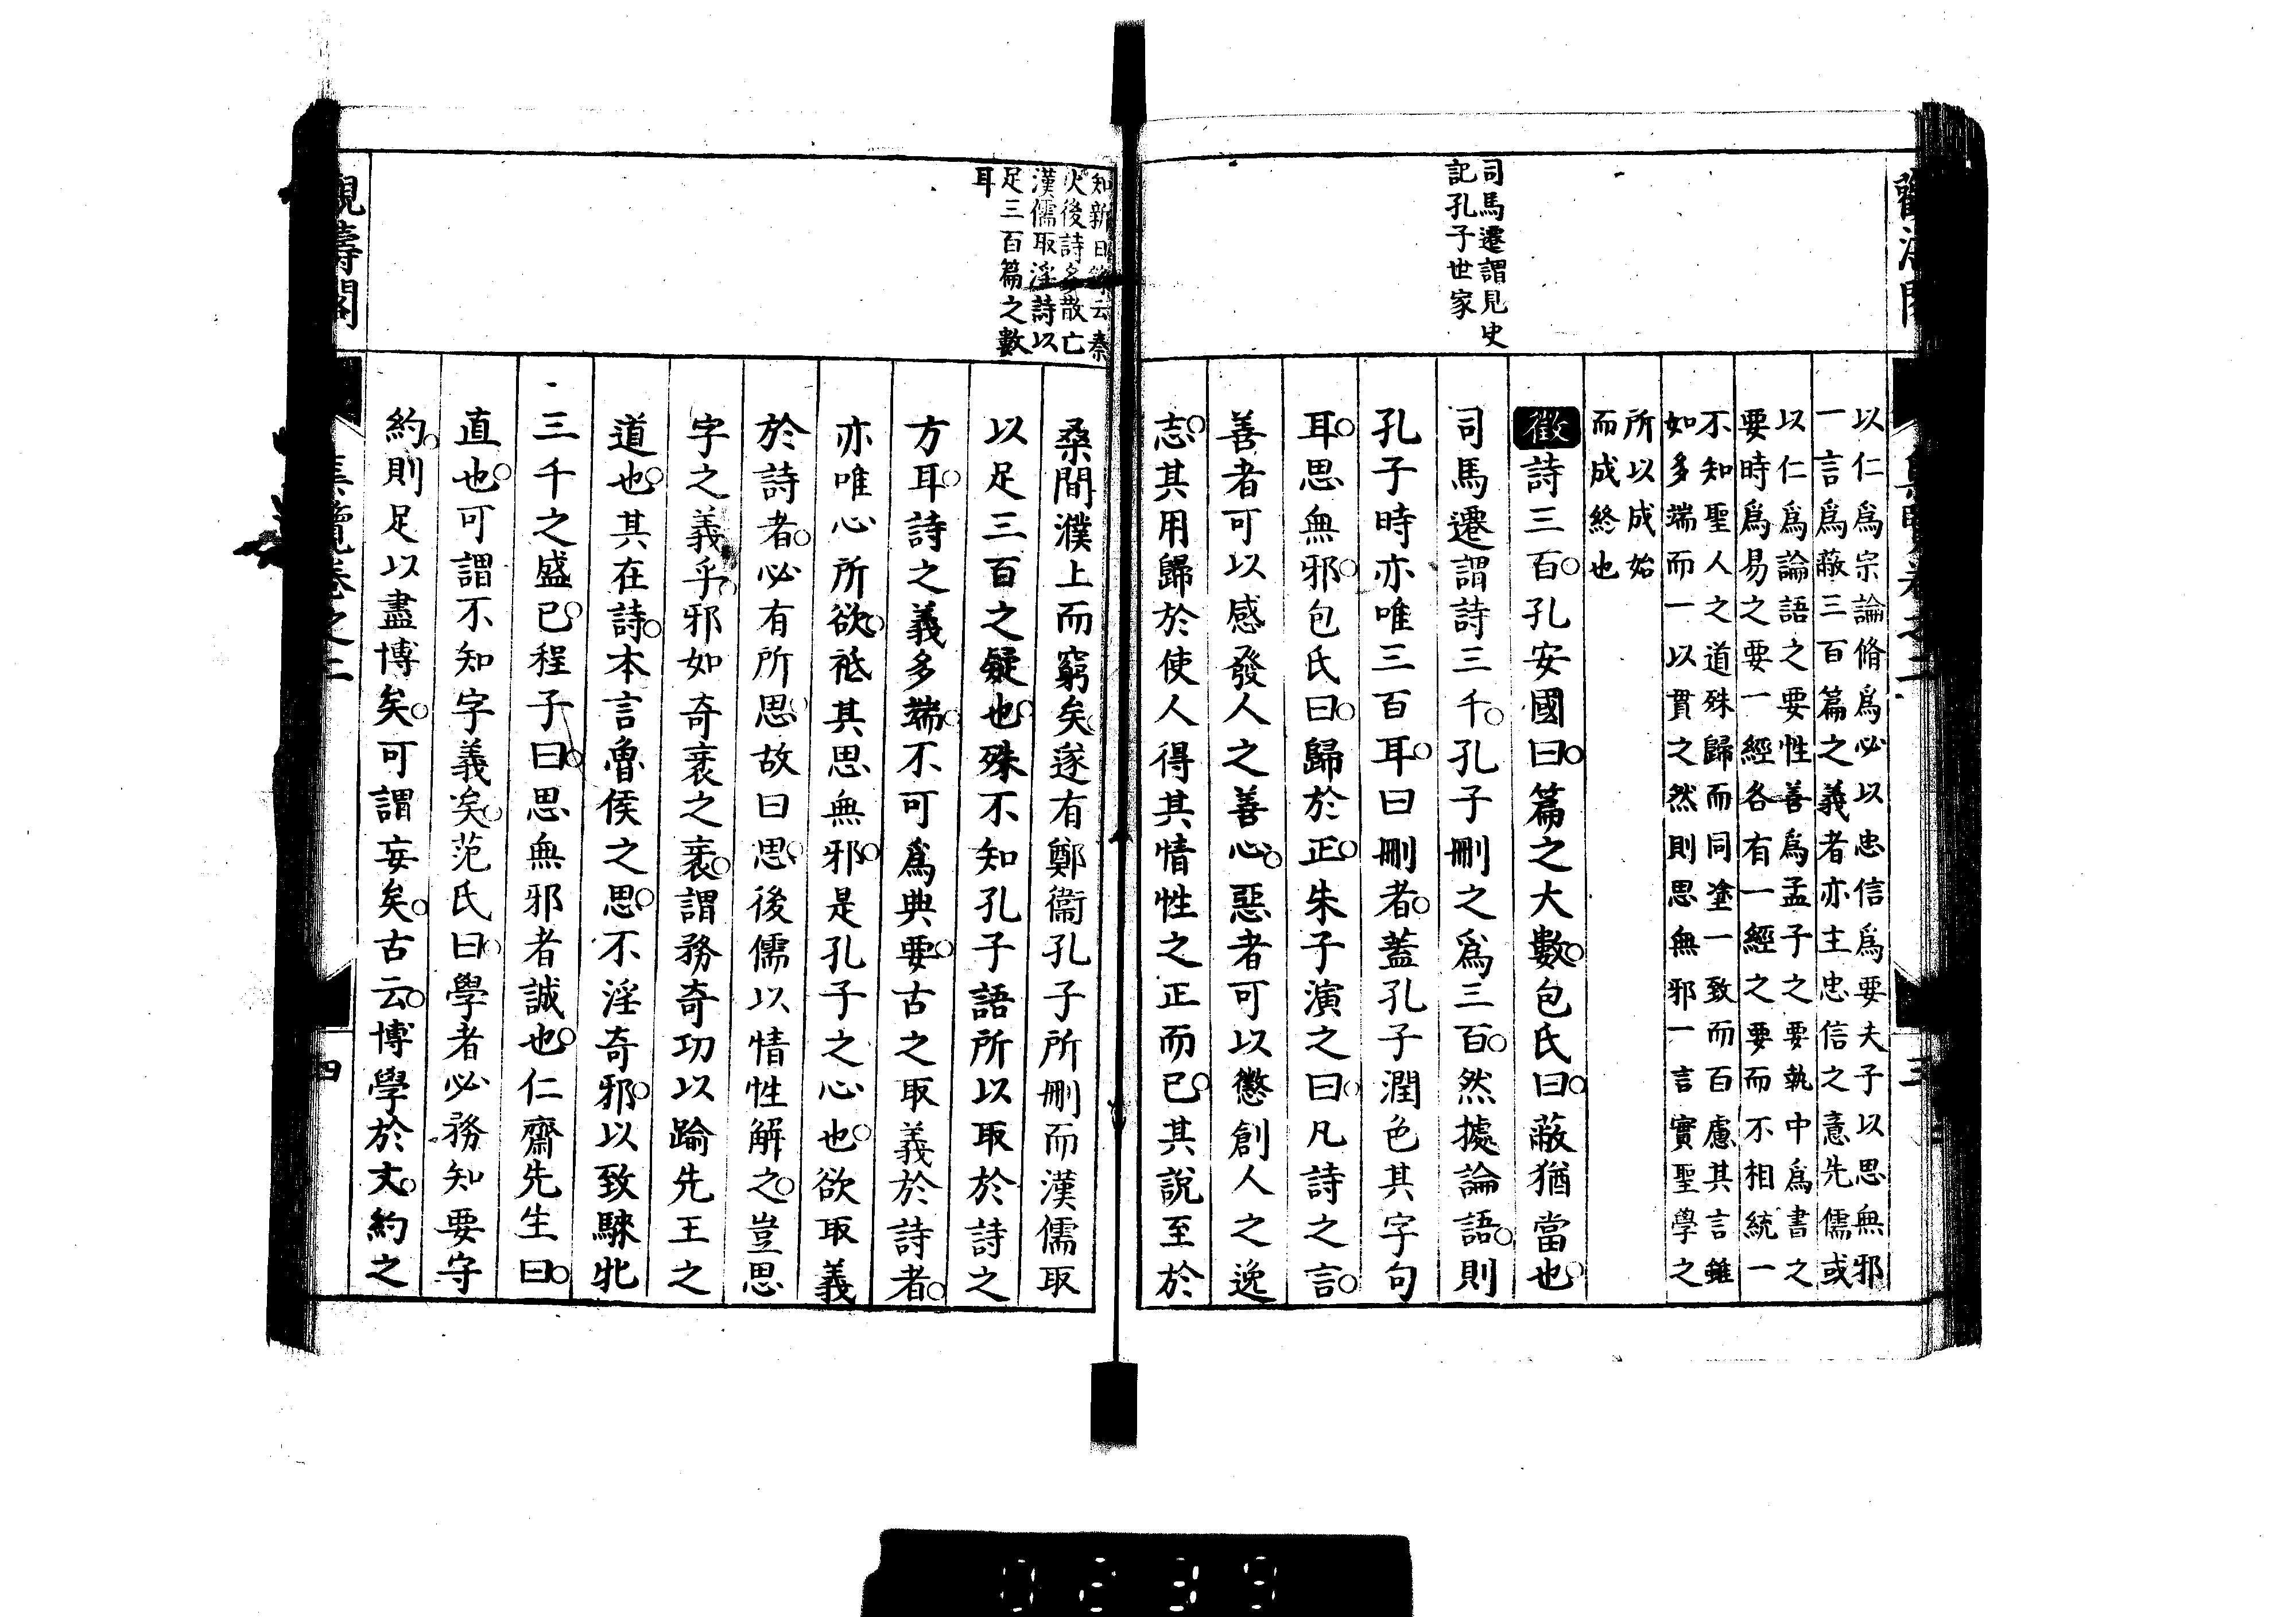 司馬遷謂見史
記孔子世家
以仁爲宗論脩爲必以忠信爲要夫子以思無邪
一言爲蔽三百篇之義者亦主忠信之意先儒或
以仁爲論語之要性善爲孟子之要執中爲書之
要時爲易之要一經各有一經之要而不相統一
不知聖人之道殊歸而同塗一致而百慮其言雖
如多端而一以貫之然則思無邪一言實聖學之
所以成始
而成終也
徵詩三百孔安國曰篇之大數包氏曰蔽猶當也
司馬遷謂詩三千孔子刪之爲三百然據論語則
孔子時亦唯三百耳曰刪者蓋孔子潤色其字句
耳思無邪包氏曰歸於正朱子演之曰凡詩之言
善者可以感發人之善心惡者可以懲創人之逸
志其用歸於使人得其情性之正而已其說至於
三
知新日錄云秦
火後詩多散亡
漢儒取淫詩以
足三百篇之數
耳
桑間濮上而窮矣遂有鄭衞孔子所刪而漢儒取
以足三百之疑也殊不知孔子語所以取於詩之
方耳詩之義多端不可爲典要古之取義於詩者
亦唯心所欲祗其思無邪是孔子之心也欲取義
於詩者必有所思故曰思後儒以情性解之豈思
字之義乎邪如奇衺之衺謂務奇功以踰先王之
道也其在詩本言魯侯之思不淫奇邪以致騋牝
三千之盛已程子曰思無邪者誠也仁齋先生曰
直也可謂不知字義矣范氏曰學者必務知要守
約則足以盡博矣可謂妄矣古云博學於文約之
觀濤閣
集覽卷之二
四
0239